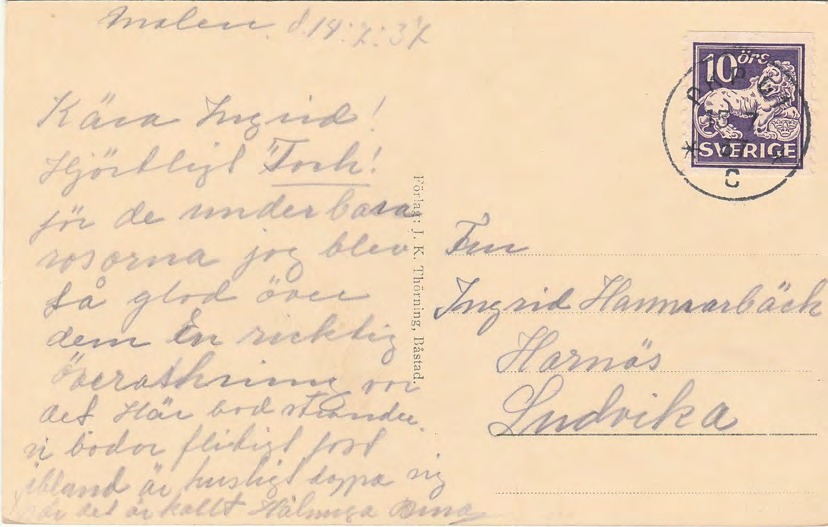 Malen d 14.7.37
Kära Ingrid!
Hjärtligt Tack!
för de underbara
rosorna jag blev
så glad över
dem En richtig
överaskning var
det Här bad stränder.
vi badar flitigt fast
ibland är huskigt doppa sig
när det är kallt Hälninga
10 ÖRE
SVERIGE
PKP
C
Förlag: J. K. Thörning, Båstad.
Fru
Ingrid Hammarbäck
Harnäs
Ludvika